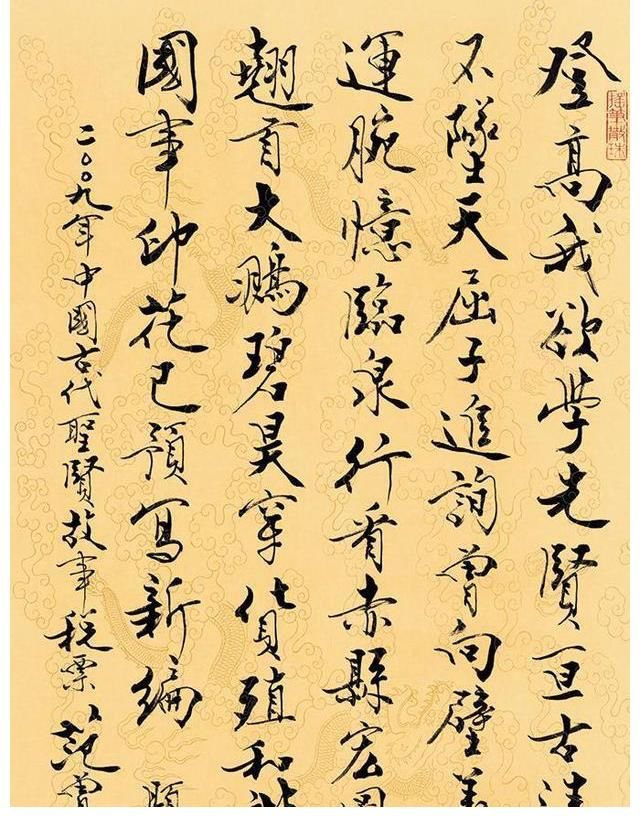 登高我欲学先賢亘古
不墜天屈子追詢曾向壁
運腕憶臨泉行看赤縣宏圖
翹首大鵬碧昊穿貨殖和
國事印花已預寫新編 題
二〇〇九年中國古代聖賢故事税票 范曾